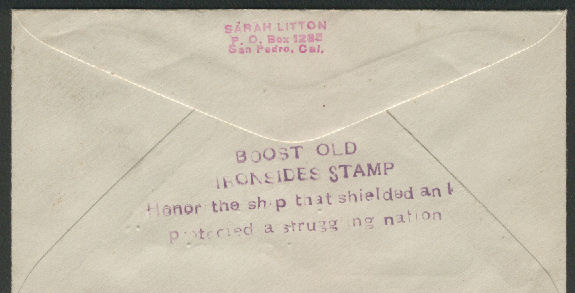 SARAH LITTON
P. O. Box 1285
San Pedro, Cal.
BOOST OLD
IRONSIDES STAMP
Honor the ship that shielded and
protected a struggling nation